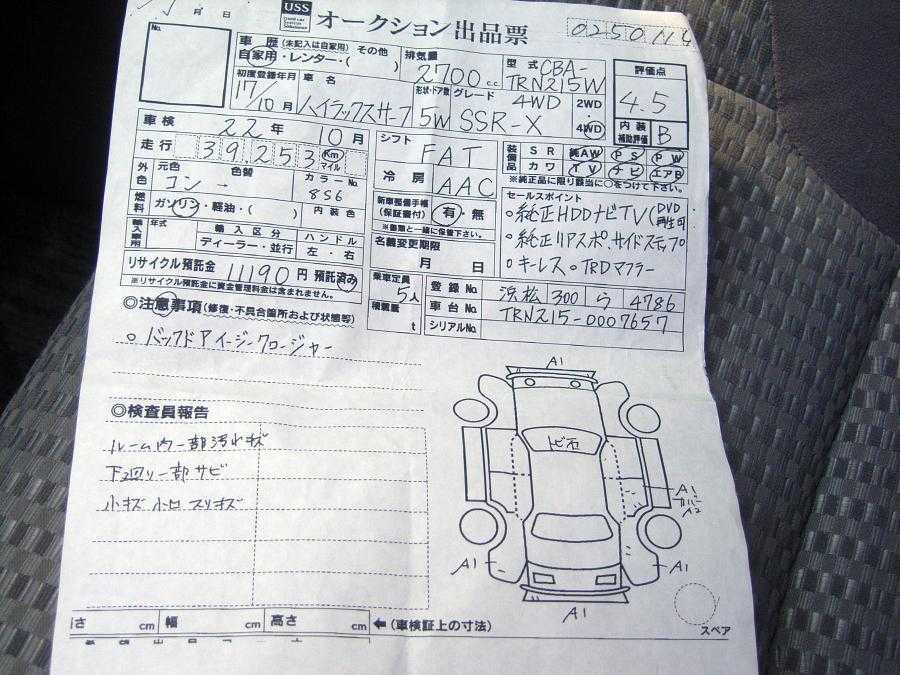 月 日
USS
オークション出品票
0250114
No.
車歴 (未記入は自家用) その他
自家用・レンター・( )
排気量
2700cc
型式 CBA-
TRN215W
評価点
4.5
内装
補助評価 B
初度登録年月
17/10月
車名
ハイラックスサーフ
形状・ドア数
5W
グレード 4WD
SSR-X
2WD
4WD
車検 22年 10月
走行 39,253 Km マイル
シフト
FAT
冷房
AAC
装備品
SR 純AW PS PW
カワ TV ナビ エアB
※純正品に限り該当に○をつけて下さい。
外色 元色 色替
コン →
カラーNo.
8S6
燃料 ガソリン・軽油・( )
内装色
新車整備手帳
(保証書付) 有・無
※書類と一緒に保管下さい。
セールスポイント
○純正HDDナビTV(DVD再生可
○純正リアスポ,サイドステップ○
○キーレス ○TRDマフラー
輸入車用 年式
輸入区分
ディーラー・並行
ハンドル
左・右
名義変更期限
月 日
リサイクル預託金 11190円 預託済み
※リサイクル預託金に資金管理料金は含まれません。
乗車定員
5人
積載量
t
登録No 浜松 300 ら 4786
車台No. TRN215-0007657
シリアルNo.
◎注意事項(修復・不具合箇所および状態等)
○ バックドアイージークロージャー
◎検査員報告
ルーム内一部汚れキズ
下廻り一部サビ
小キズ 小凹 スリキズ
A1
トビ石
A1
カバー
A2
A1
A1
A1
スペア
さ cm 幅 cm 高さ cm
←(車検証上の寸法)